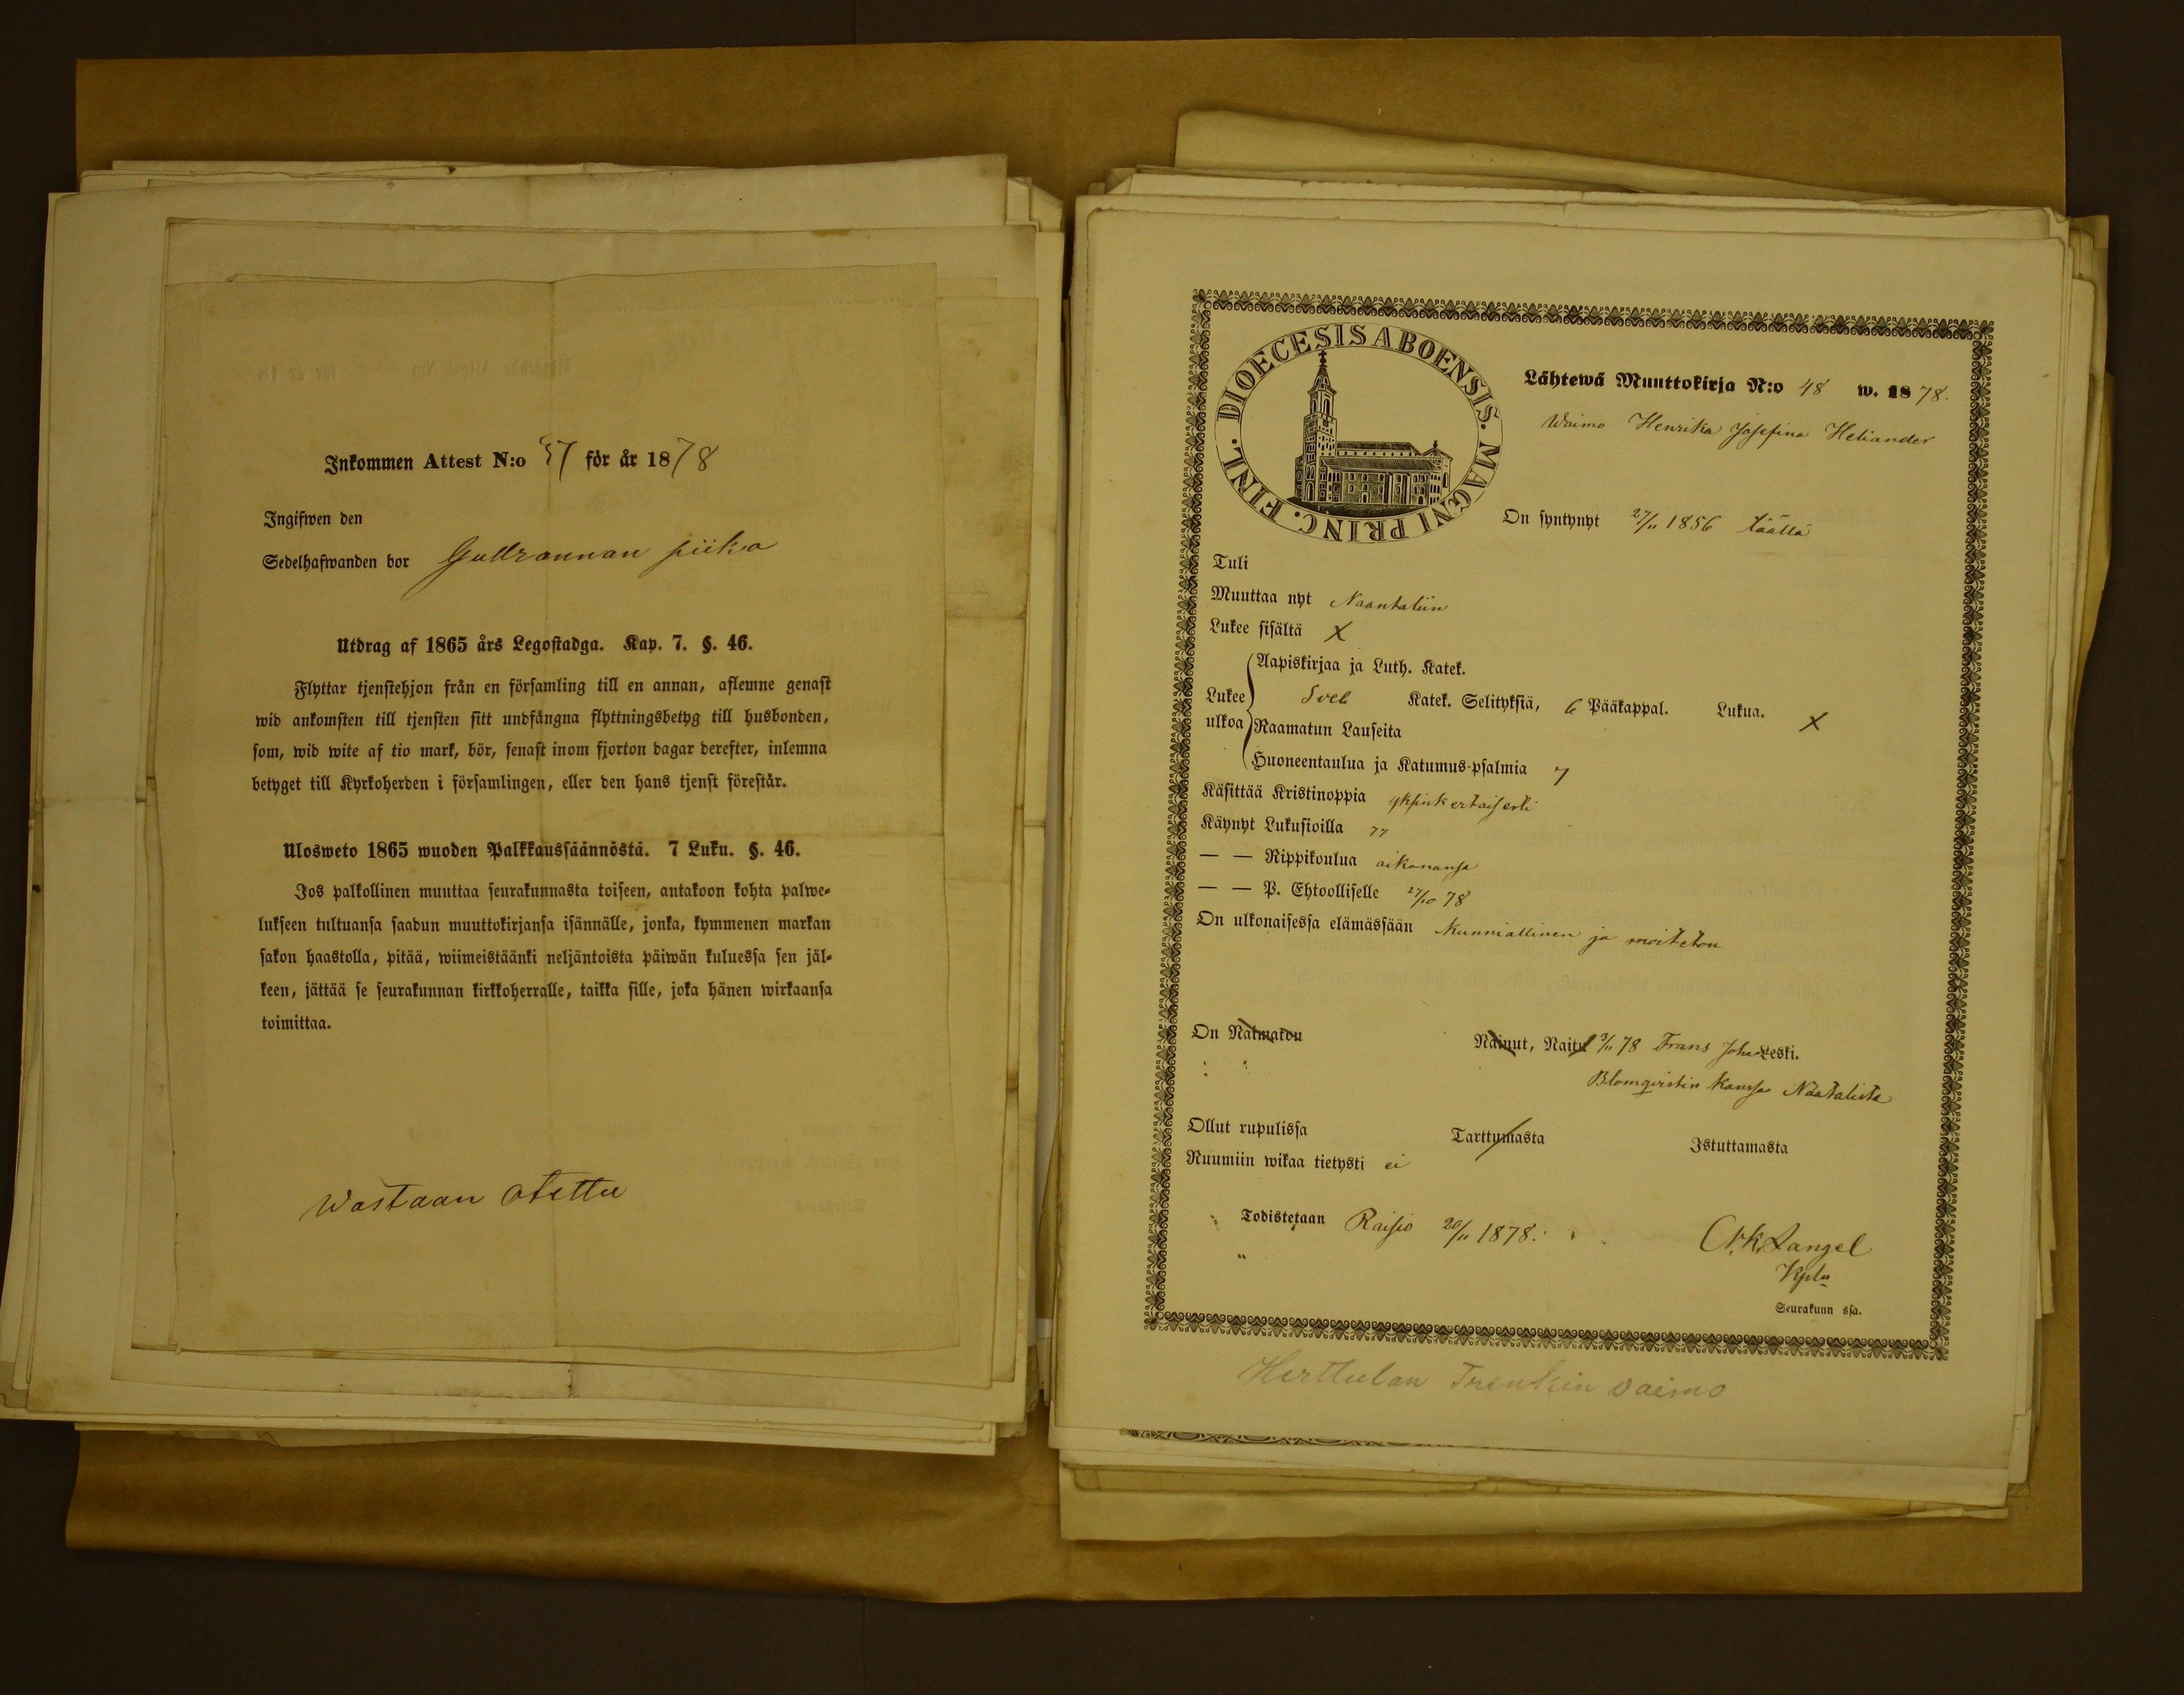 Inkommen Attest N:o 57 för år 1878
Ingifwen den
Sedelhafwanden bor Gullrannan piika
Utdrag af 1865 års Legostadga. Kap. 7. §. 46.
Flyttar tjenstehjon från en församling till en annan, aflemne genast
wid ankomsten till tjensten sitt undfångna flyttningsbetyg till husbonden,
som, wid wite af tio mark, bör, senast inom fjorton dagar derefter, inlemna
betyget till Kyrkoherden i församlingen, eller den hans tjenst förestår.
Ulosweto 1865 wuoden Palkkaussäännöstä. 7 Luku. §. 46.
Jos palkollinen muuttaa seurakunnasta toiseen, antakoon kohta palwe-
lukseen tultuansa saadun muuttokirjansa isännälle, jonka, kymmenen markan
sakon haastolla, pitää, wiimeistäänki neljäntoista päiwän kuluessa sen jäl-
keen, jättää se seurakunnan kirkkoherralle, taikka sille, joka hänen wirkaansa
toimittaa.
Wastaan otettu
DIOECESIS ABOENSIS. MAGNI PRINC. FINL.
Lähtewä Muuttokirja N:o 48 w. 1878.
Waimo Henrika Josefina Heliander
On syntynyt 27/11 1856 täällä
Tuli
Muuttaa nyt Naantaliin
Lukee sisältä X
Lukee ulkoa
Aapiskirjaa ja Luth. Katek.
Sveb Katek. Selityksiä, 6 Pääkappal. Lukua. X
Raamatun Lauseita
Huoneentaulua ja Katumus-psalmia 7
Käsittää Kristinoppia yksinkertaisesti
Käynyt Lukusioilla 77
— — Rippikoulua aikonansa
— — P. Ehtoolliselle 27/10 78
On ulkonaisessa elämässään kunniallinen ja moiteton
On Naimaton Nainut, Naitu 3/11 78 Frans Joha Leski.
Blomqvistin kanssa Naatalista
Ollut rupulissa Tarttumasta Istuttamasta
Ruumiin wikaa tietysti ei
Todistetaan Raisio 20/11 1878.
"
Langel
Kpln
Seurakunn ssa.
Herttulan Frenkin vaimo